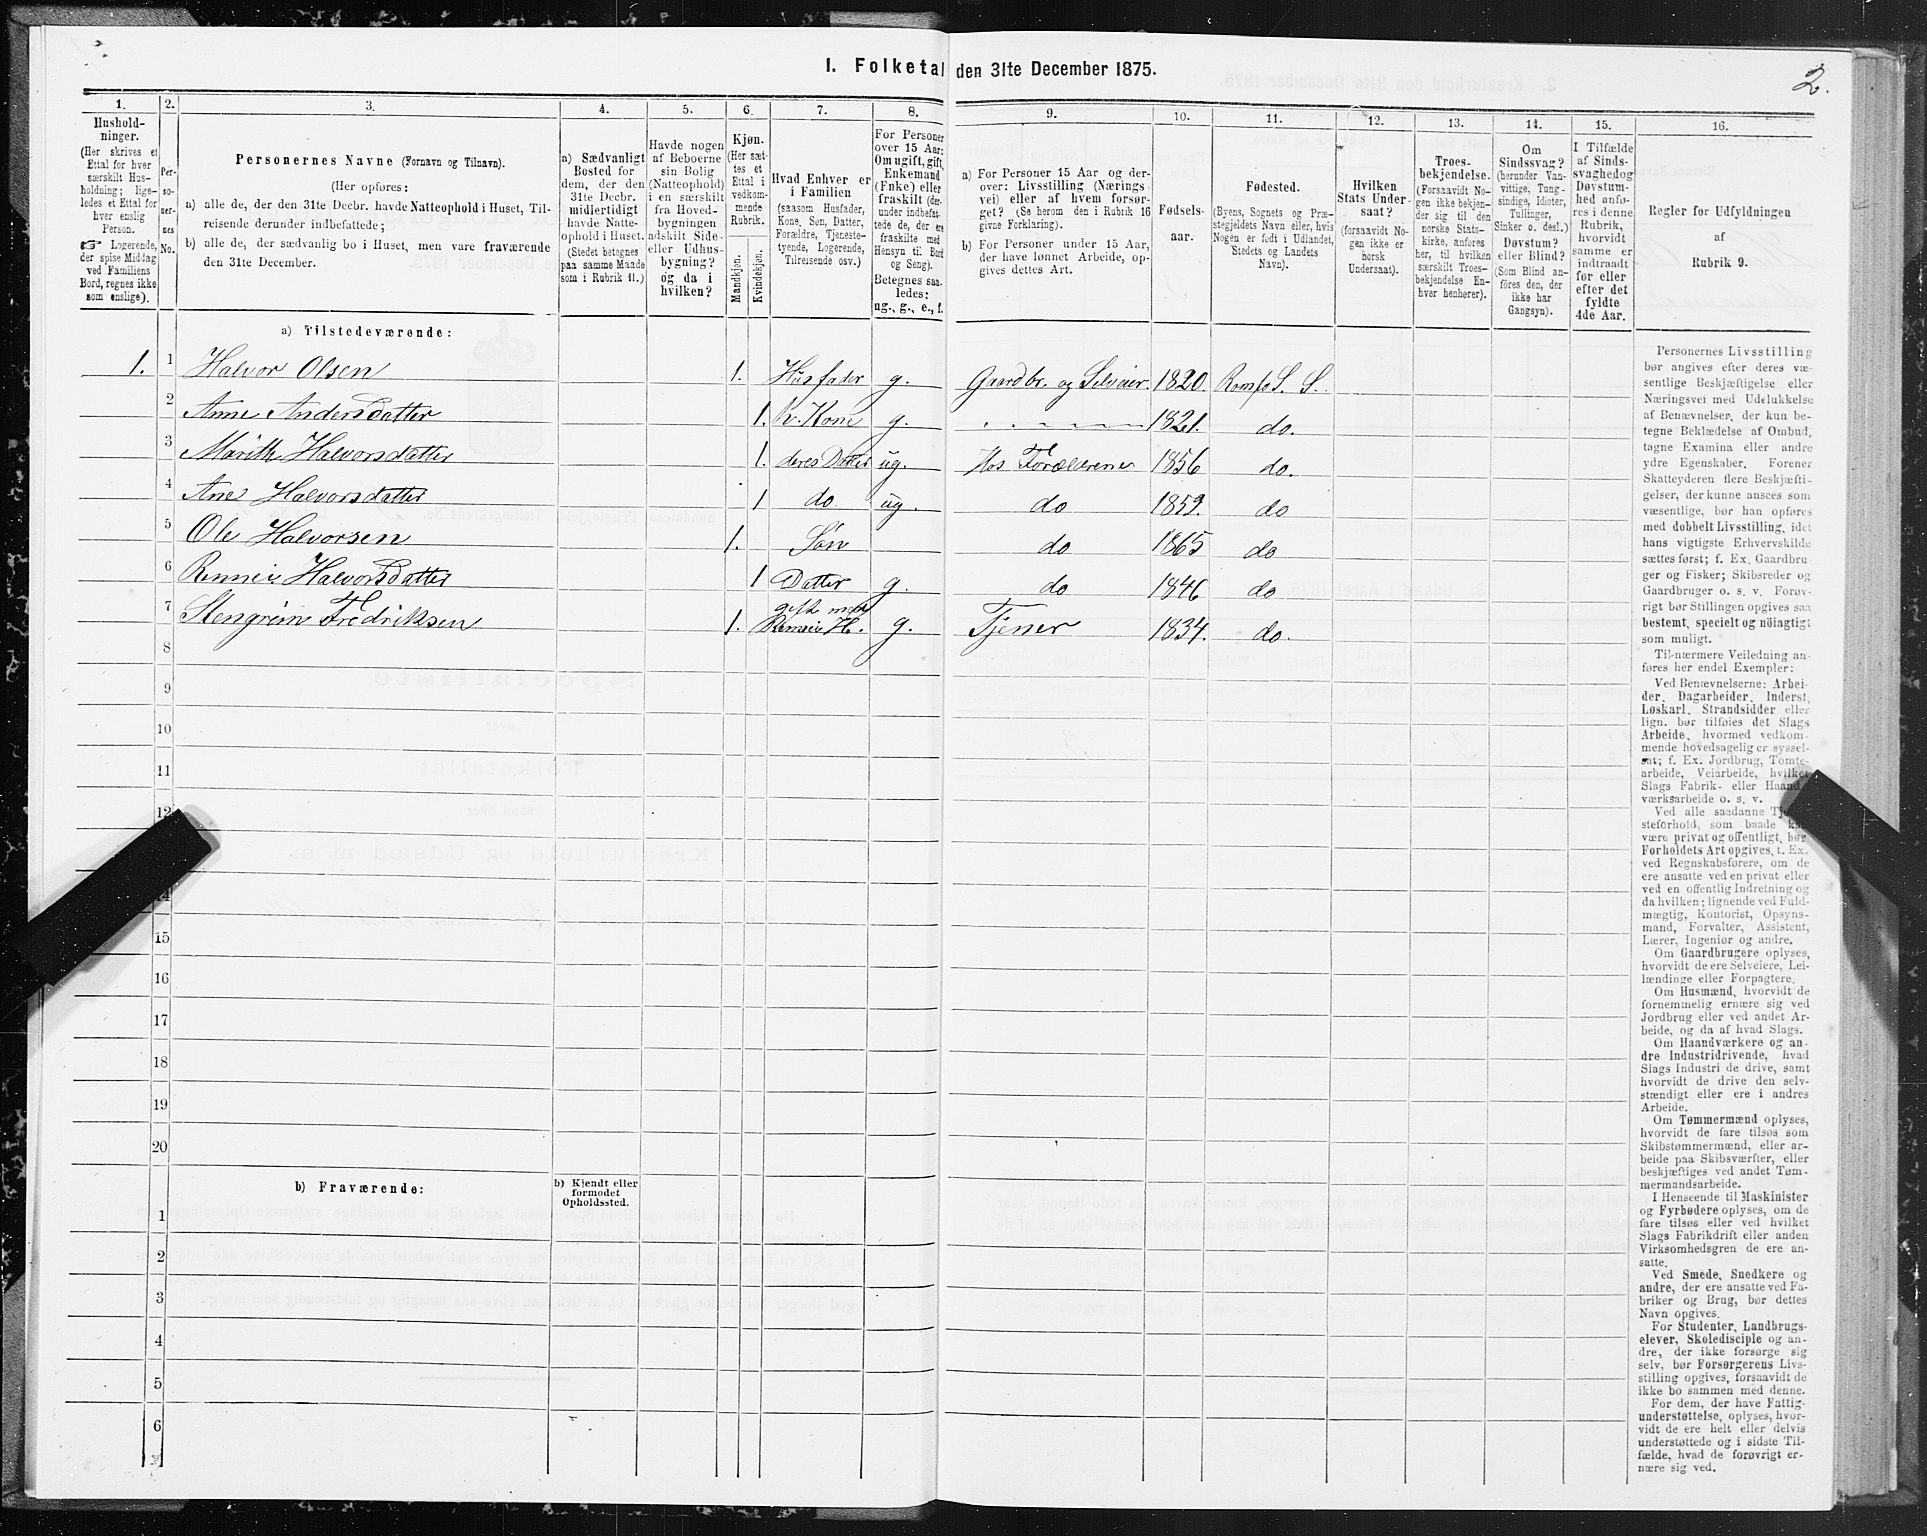 2.
1. Folketal den 31te December 1875.
1.
Hushold-
ninger.
(Her skrives et
Ettal for hver
særskilt Hus-
holdning; lige-
ledes et Ettal for
hver enslig
Person.
☞ Logerende,
der spise Middag
ved Familiens
Bord, regnes ikke
som enslige).
2.
Per-
so-
ner-
nes
No.
3.
Personernes Navne (Fornavn og Tilnavn).
(Her opføres:
a) alle de, der den 31te Decbr. havde Natteophold i Huset, Til-
reisende derunder indbefattede;
b) alle de, der sædvanlig bo i Huset, men vare fraværende
den 31te December.
4.
a) Sædvanligt
Bosted for
dem, der den
31te Decbr.
midlertidigt
havde Natte-
ophold i Huset.
(Stedet betegnes
paa samme Maade
som i Rubrik 11.)
5.
Havde nogen
af Beboerne
sin Bolig
(Natteophold)
i en særskilt
fra Hoved-
bygningen
adskilt Side-
eller Udhus-
bygning?
og da i
hvilken?
6.
Kjøn.
(Her sæt-
tes et
Ettal i
vedkom-
mende
Rubrik.
Mandkjøn.
Kvindekjøn.
7.
Hvad Enhver er
i Familien
(saasom Husfader,
Kone, Søn, Datter,
Forældre, Tjeneste-
tyende, Logerende,
Tilreisende osv.)
8.
For Personer
over 15 Aar:
Om ugift, gift,
Enkemand
(Enke) eller
fraskilt (der-
under indbefat-
tede de, der ere
fraskilte med
Hensyn til Bord
og Seng).
Betegnes saa-
ledes:
ug., g., e., f.
9.
a) For Personer 15 Aar og der-
over: Livsstilling (Nærings-
vei) eller af hvem forsør-
get? (Se herom den i Rubrik 16
givne Forklaring).
b) For Personer under 15 Aar,
der have lønnet Arbeide, op-
gives dettes Art.
10.
Fødsels-
aar.
11.
Fødested.
(Byens, Sognets og Præ-
stegjeldets Navn eller, hvis
Nogen er født i Udlandet,
Stedets og Landets
Navn).
12.
Hvilken
Stats Under-
saat?
(forsaavidt No-
gen ikke er
norsk
Undersaat).
13.
Troes-
bekjendelse.
(Forsaavidt No-
gen ikke bekjen-
der sig til den
norske Stats-
kirke, anføres
her, til hvilken
særskilt Troes-
bekjendelse En-
hver henhører).
14.
Om
Sindssvag?
(herunder Van-
vittige, Tung-
sindige, Idioter,
Tullinger,
Sinker o. desl.)
Døvstum?
eller Blind?
(Som Blind an-
føres den, der
ikke har
Gangsyn).
15.
I Tilfælde
af Sinds-
svaghed og
Døvstum-
hed anfø-
res i denne
Rubrik,
hvorvidt
samme er
indtraadt
før eller
efter det
fyldte
4de Aar.
16.
Regler for Udfyldningen
af
Rubrik 9.
a) Tilstedeværende:
1. 1 Halvor Olsen 1. Husfader g. Gaardbr. og Selveier. 1820. Romfo S. S.
2 Anne Andersdatter 1. h. Kone g. 1821. do.
3 Marith Halvorsdatter 1. deres Datter ug. Hos Forældrene 1856 do.
4 Ane Halvorsdatter 1 do. ug. do 1859. do
5 Ole Halvorsen 1. Søn do 1865 do
6 Rennei Halvorsdatter 1 Datter g. do 1846 do
7 Stengrim Fredriksen 1. gift med Rennei H. g. Tjener 1834. do.
8
9
10
11
12
14
15
16
17
18
19
20
b) Fraværende:
b) Kjendt eller
formodet
Opholdssted.
1
2
3
4
5
6
Personernes Livsstilling
bør angives efter deres væ-
sentlige Beskjæftigelse eller
Næringsvei med Udelukkelse
af Benævnelser, der kun be-
tegne Beklædelse af Ombud,
tagne Examina eller andre
ydre Egenskaber. Forener
Skatteyderen flere Beskjæfti-
gelser, der kunne ansees som
væsentlige, bør han opføres
med dobbelt Livsstilling, idet
hans vigtigste Erhvervskilde
sættes først; f. Ex. Gaardbru-
ger og Fisker; Skibsreder og
Gaardbruger o. s. v. Forøv-
rigt bør Stillingen opgives saa
bestemt, specielt og nöiagtigt
som muligt.
Til nærmere Veiledning an-
føres her endel Exempler:
Ved Benævnelserne: Arbei-
der, Dagarbeider, Inderst,
Løskarl, Strandsidder eller
lign. bør tilføies det Slags
Arbeide, hvormed vedkom-
mende hovedsagelig er syssel-
sat; f. Ex. Jordbrug, Tomte-
arbeide, Veiarbeide, hvilket
Slags Fabrik- eller Haand-
værksarbeide o. s. v.
Ved alle saadanne
steforhold, som baade
være privat og offentligt, bør
Forholdets Art opgives, t. Ex.
ved Regnskabsførere, om de
ere ansatte ved en privat eller
ved en offentlig Indretning og
da hvilken; lignende ved Fuld-
mægtig, Kontorist, Opsyns-
mand, Forvalter, Assistent,
Lærer, Ingeniør og andre.
Om Gaardbrugere oplyses,
hvorvidt de ere Selveiere, Lei-
lændinge eller Forpagtere.
Om Husmænd, hvorvidt de
fornemmelig ernære sig ved
Jordbrug eller ved andet Ar-
beide, og da af hvad Slags.
Om Haandværkere og an-
dre Industridrivende, hvad
Slags Industri de drive, samt
hvorvidt de drive den selv-
stændigt eller ere i andres
Arbeide.
Om Tømmermænd oplyses,
hvorvidt de fare tilsøs som
Skibstømmermænd, eller ar-
beide paa Skibsværfter, eller
beskjæftiges ved andet Tøm-
mermandsarbeide.
I Henseende til Maskinister
og Fyrbødere oplyses, om de
fare tilsøs eller ved hvilket
Slags Fabrikdrift eller anden
Virksomhedsgren de ere an-
satte.
Ved Smede, Snedkere og
andre, der ere ansatte ved Fa-
briker og Brug, bør dettes
Navn opgives.
For Studenter, Landbrugs-
elever, Skoledisciple og an-
dre, der ikke forsørge sig
selv, bør Forsørgerens Livs-
stilling opgives, forsaavidt de
ikke bo sammen med denne.
For dem, der have Fattig-
understøttelse, oplyses, hvor-
vidt de ere helt eller delvis
understøttede og i sidste Til-
fælde, hvad de forøvrigt er-
nære sig ved.